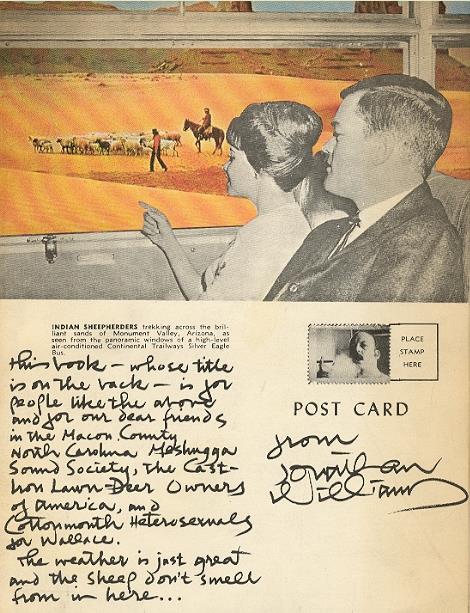 INDIAN SHEEPHERDERS trekking across the bril-
liant sands of Monument Valley, Arizona, as
seen from the panoramic windows of a high-level
air-conditioned Continental Trailways Silver Eagle
Bus.
PLACE
STAMP
HERE
POST CARD
this book — whose title
is on the back — is for
people like the above
and for our dear friends
in the Macon County
North Carolina Meshugga
Sound Society, the Cast-
Iron Lawn Deer Owners
of America, and
Cottonmouth Heterosexuals
for Wallace.
The weather is just great
and the sheep don't smell
from in here...
from
Jonathan
Williams